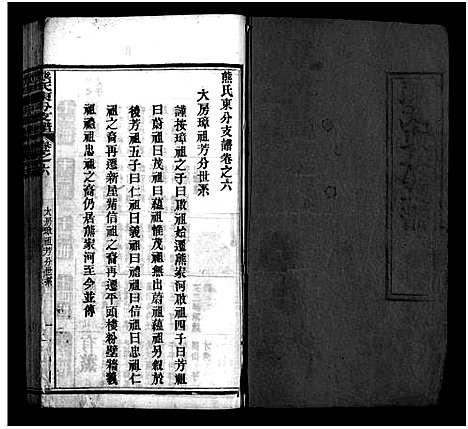 熊氏東分支譜卷之六
大房璋祖芳分世系
謹按璋祖之子曰敢祖始遷熊家河敢祖四子曰芳祖
曰蔚祖曰茂祖曰蘊祖惟茂祖無出蔚祖蘊祖另敘於
後芳祖五子曰仁祖曰義祖曰禮祖曰信祖曰忠祖仁
祖之裔再遷新屋㘭信祖之裔再遷平頭樓粉壁牆義
祖禮祖忠祖之裔仍居熊家河至今並傳
熊氏東分支譜 卷之六
大房璋祖芳分世系
一